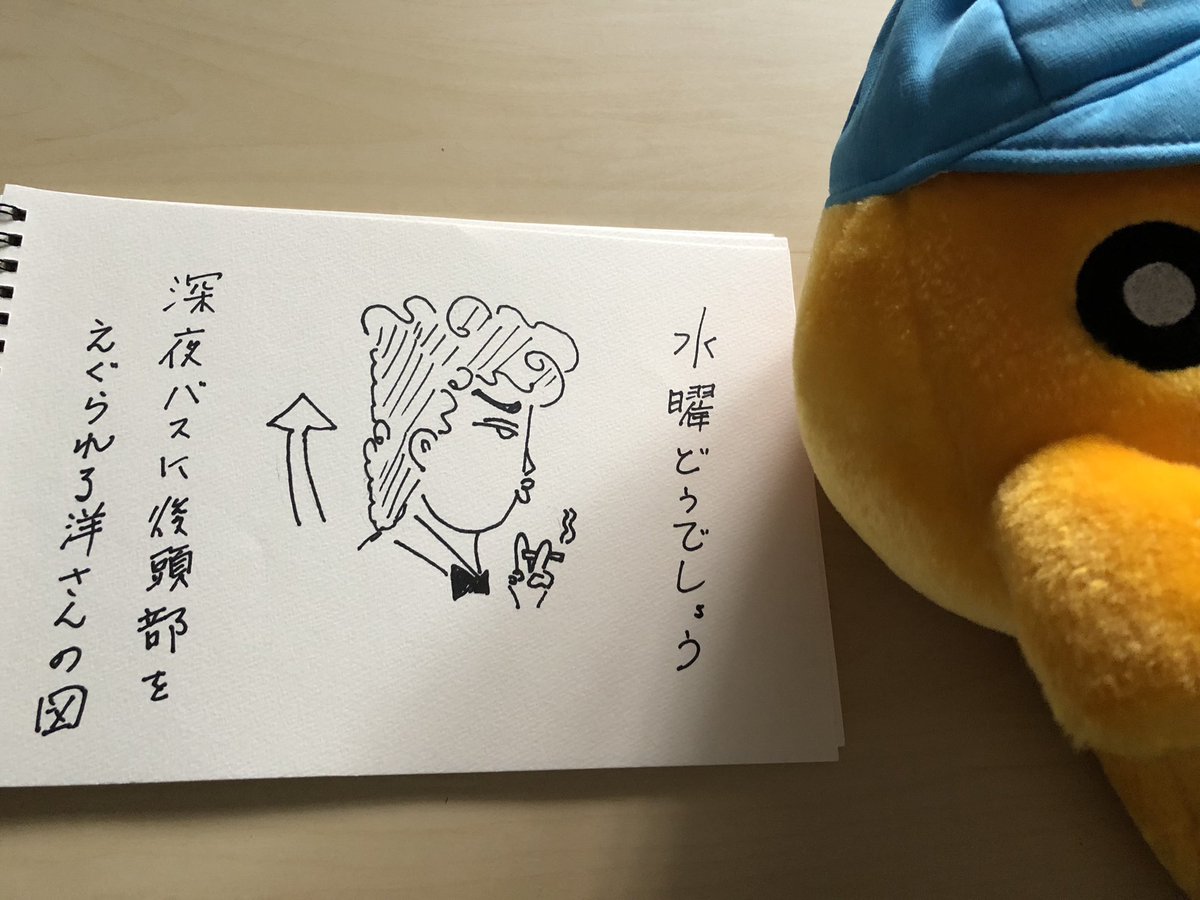 水曜どうでしょう
深夜バスに後頭部を
えぐられる洋さんの図